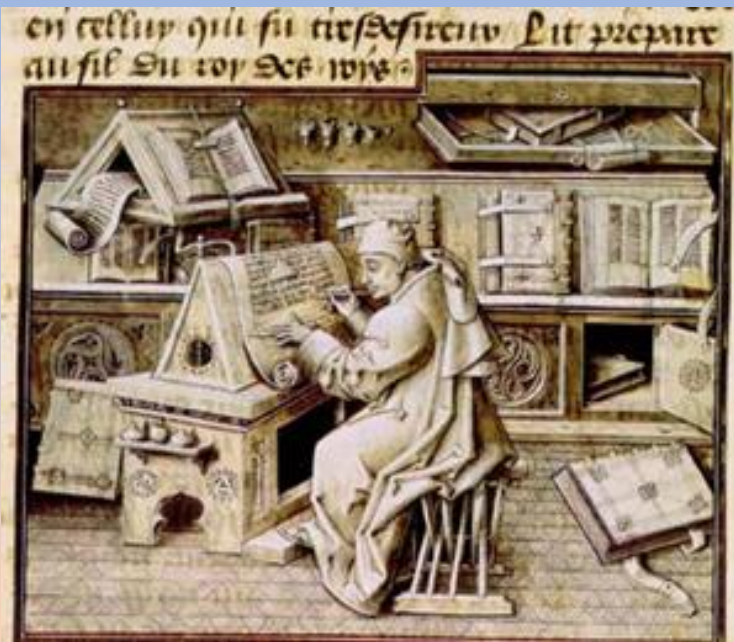 en celluy qui fu tresdesireux / Lit prepare
au fil du roy des roys